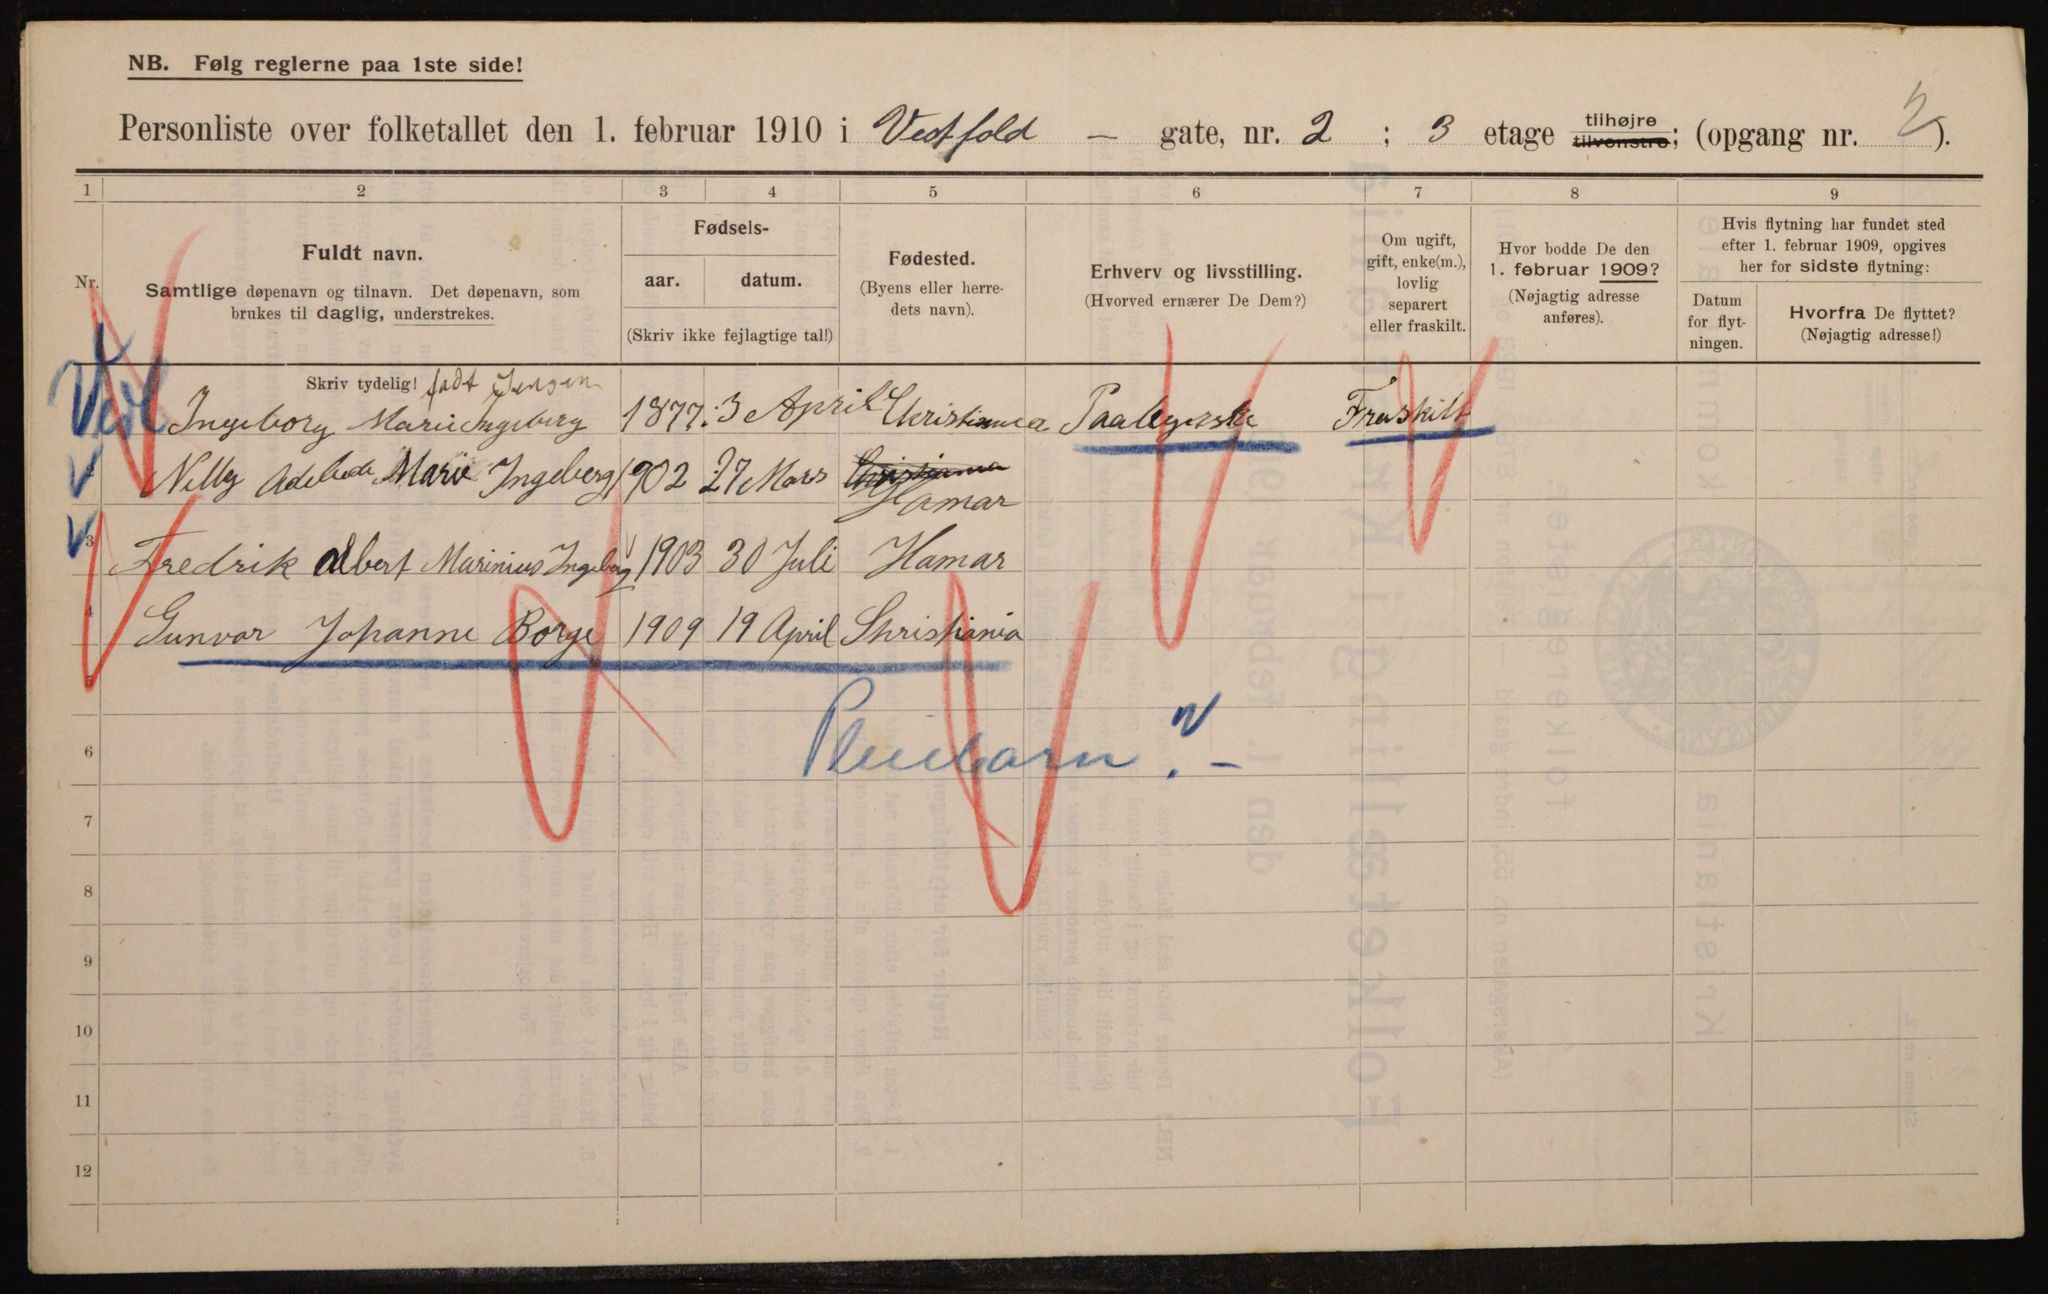 NB. Følg reglerne paa 1ste side!
Personliste over folketallet den 1. februar 1910 i Vestfold — gate, nr. 2 ; 3 etage tilhøjre tilvenstre; (opgang nr. 2).
1 2 3 4 5 6 7 8 9
Nr.
Fuldt navn.
Samtlige døpenavn og tilnavn. Det døpenavn, som
brukes til daglig, understrekes.
Fødsels-
aar. datum.
(Skriv ikke fejlagtige tal!)
Fødested.
(Byens eller herre-
dets navn).
Erhverv og livsstilling.
(Hvorved ernærer De Dem?)
Om ugift,
gift, enke(m.),
lovlig
separert
eller fraskilt.
Hvor bodde De den
1. februar 1909?
(Nøjagtig adresse
anføres).
Hvis flytning har fundet sted
efter 1. februar 1909, opgives
her for sidste flytning:
Datum
for flyt-
ningen.
Hvorfra De flyttet?
(Nøjagtig adresse!)
Skriv tydelig! født Jensen
Ingeborg Marie Ingeberg 1877. 3 April Christiania Fraskilt
Nelly Marie Ingeberg 1902 27 Mars Christiania Hamar
3 Fredrik Albert Marinius Ingeberg 1903 30 Juli Hamar
4 Gunvor Johanne Borge 1909 19 April Christiania
5
6 Pleiebarn? —
7
8
9
10
11
12